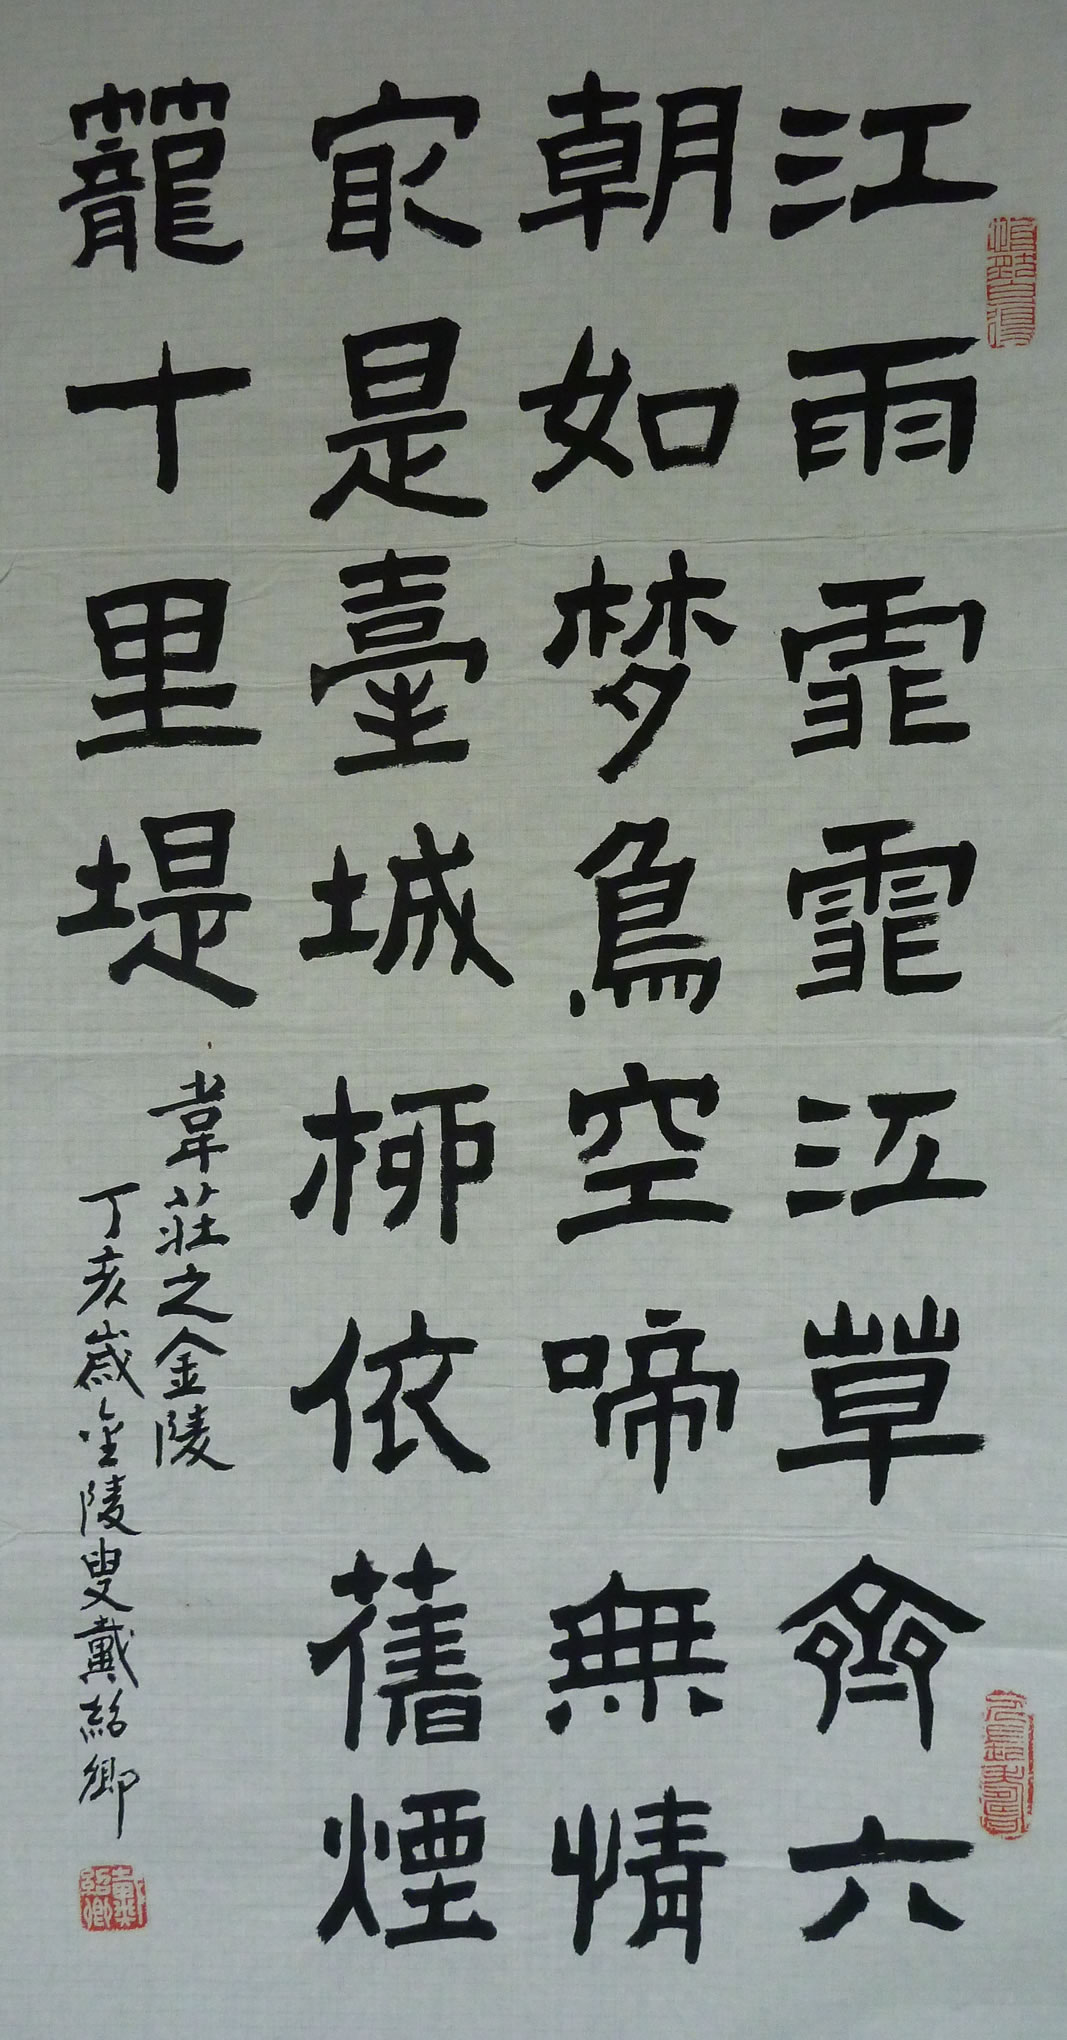 江雨霏霏江草齊六
朝如梦鳥空啼無情
㝡是臺城柳依舊煙
籠十里堤
韋莊之金陵
丁亥歲金陵叟戴紹卿
戴紹卿